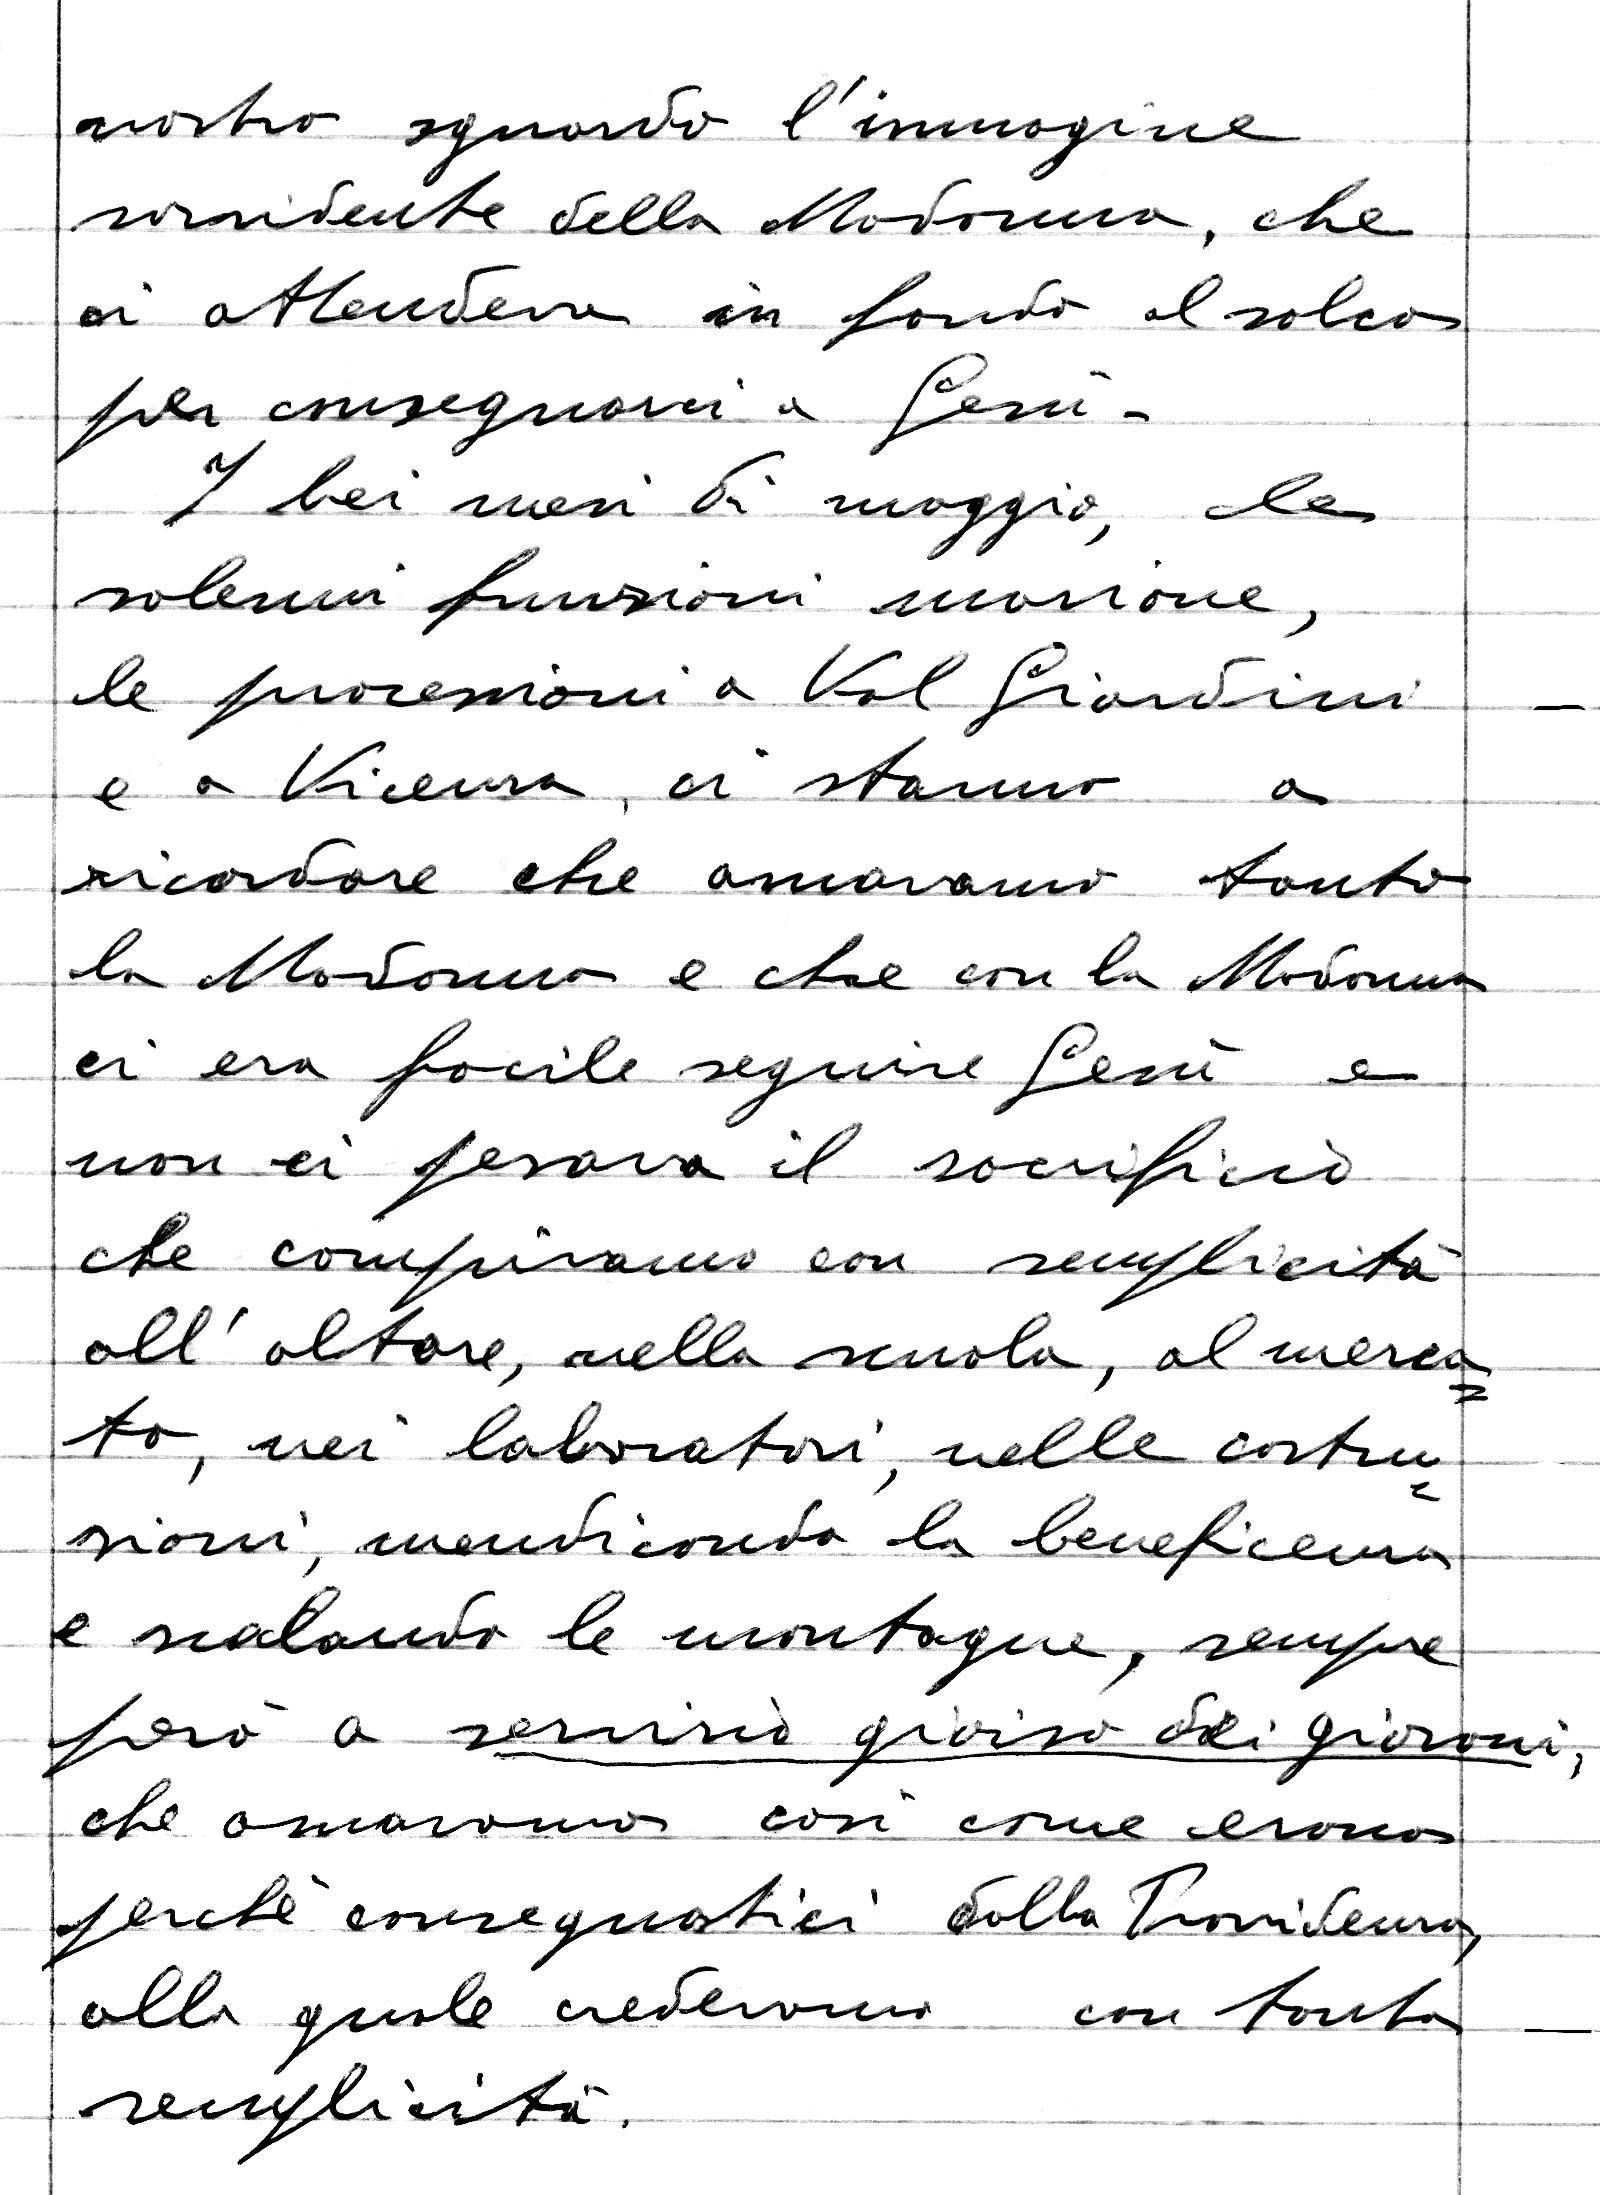 nostro sguardo l'immagine
sorridente della Madonna, che
ci attendeva in fondo al solco
per consegnarci a Gesù.
I bei mesi di maggio, le
solenni funzioni mariane,
le processioni a Val Giardini
e a Vicenza, ci stanno a
ricordare che amavamo tanto
la Madonna e che con la Madonna
ci era facile seguire Gesù e
non ci pesava il sacrificio
che compivamo con semplicità
all'altare, nella scuola, al merca=
to, nei laboratori, nelle costru=
zioni, mendicando la beneficenza
e scalando le montagne, sempre
però a servizio gioioso dei giovani,
che amavamo così come erano
perché consegnatici dalla Provvidenza,
alla quale credevamo con tanta
semplicità.